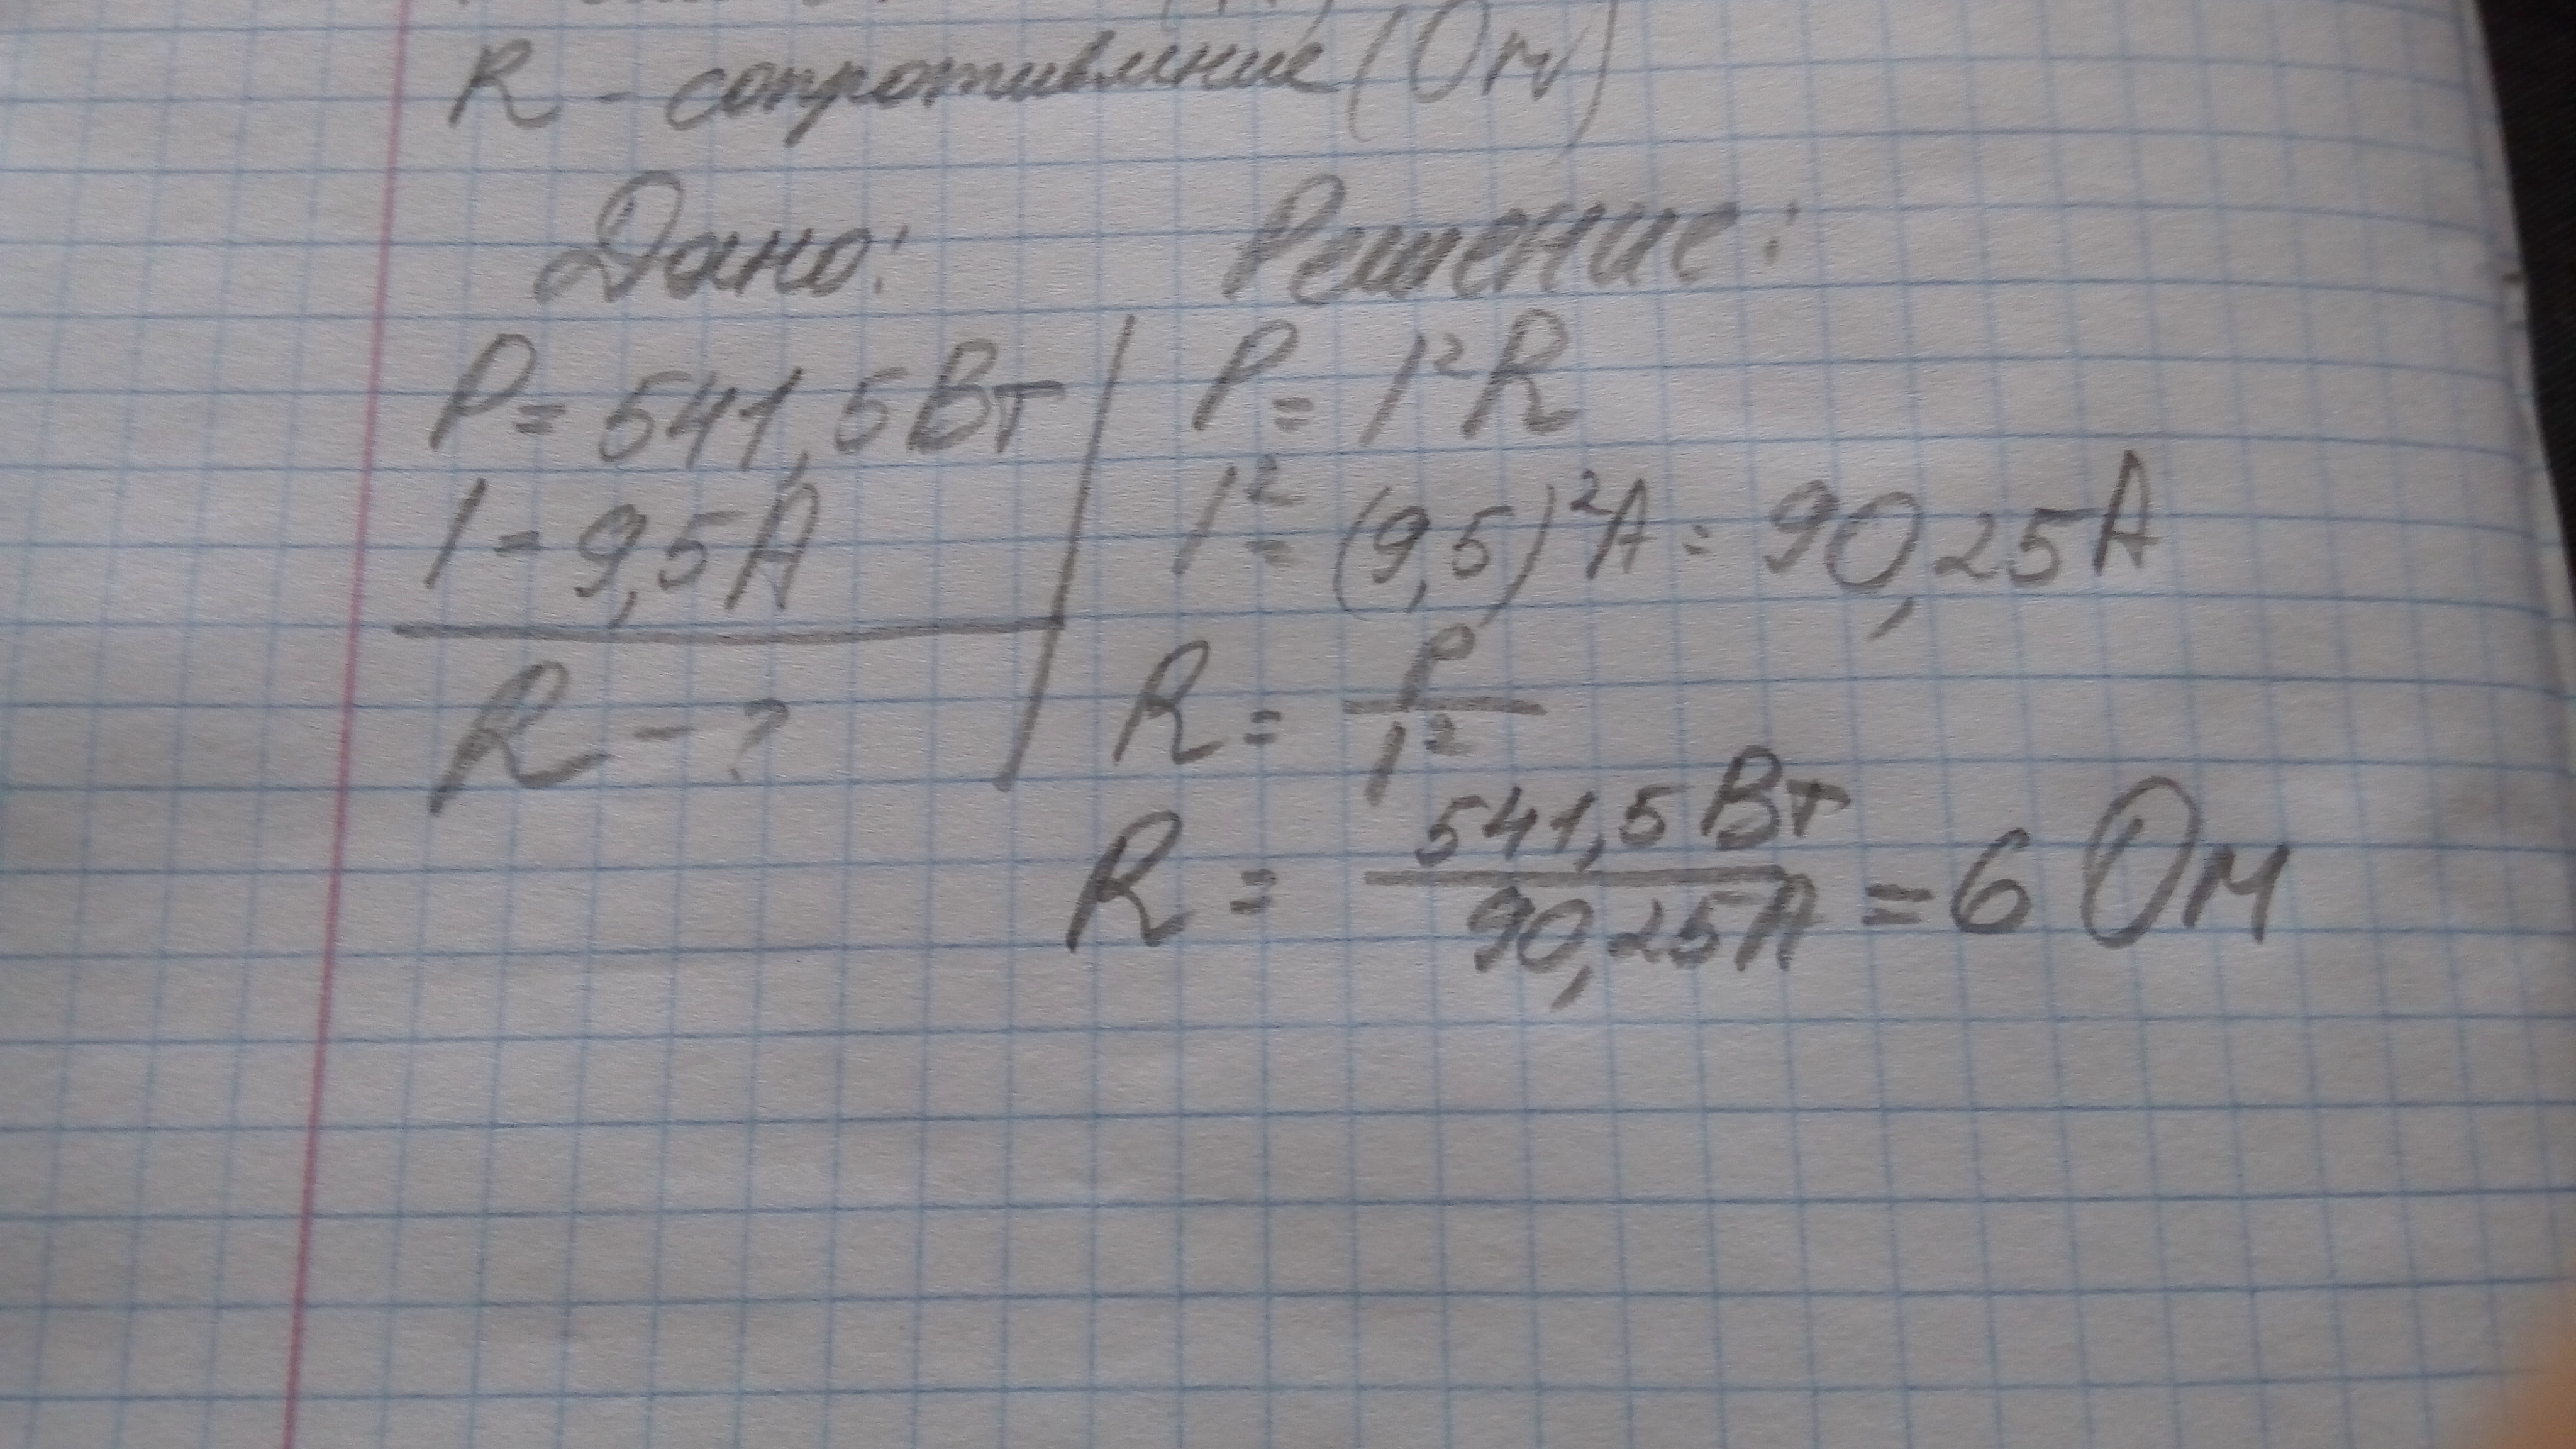 R - сопротивление (Ом)
Дано:
P = 541,5 Вт
I = 9,5 А
R - ?
Решение:
P = I²R
I² = (9,5)²А = 90,25 А
R = P / I²
R = 541,5 Вт / 90,25 А = 6 Ом